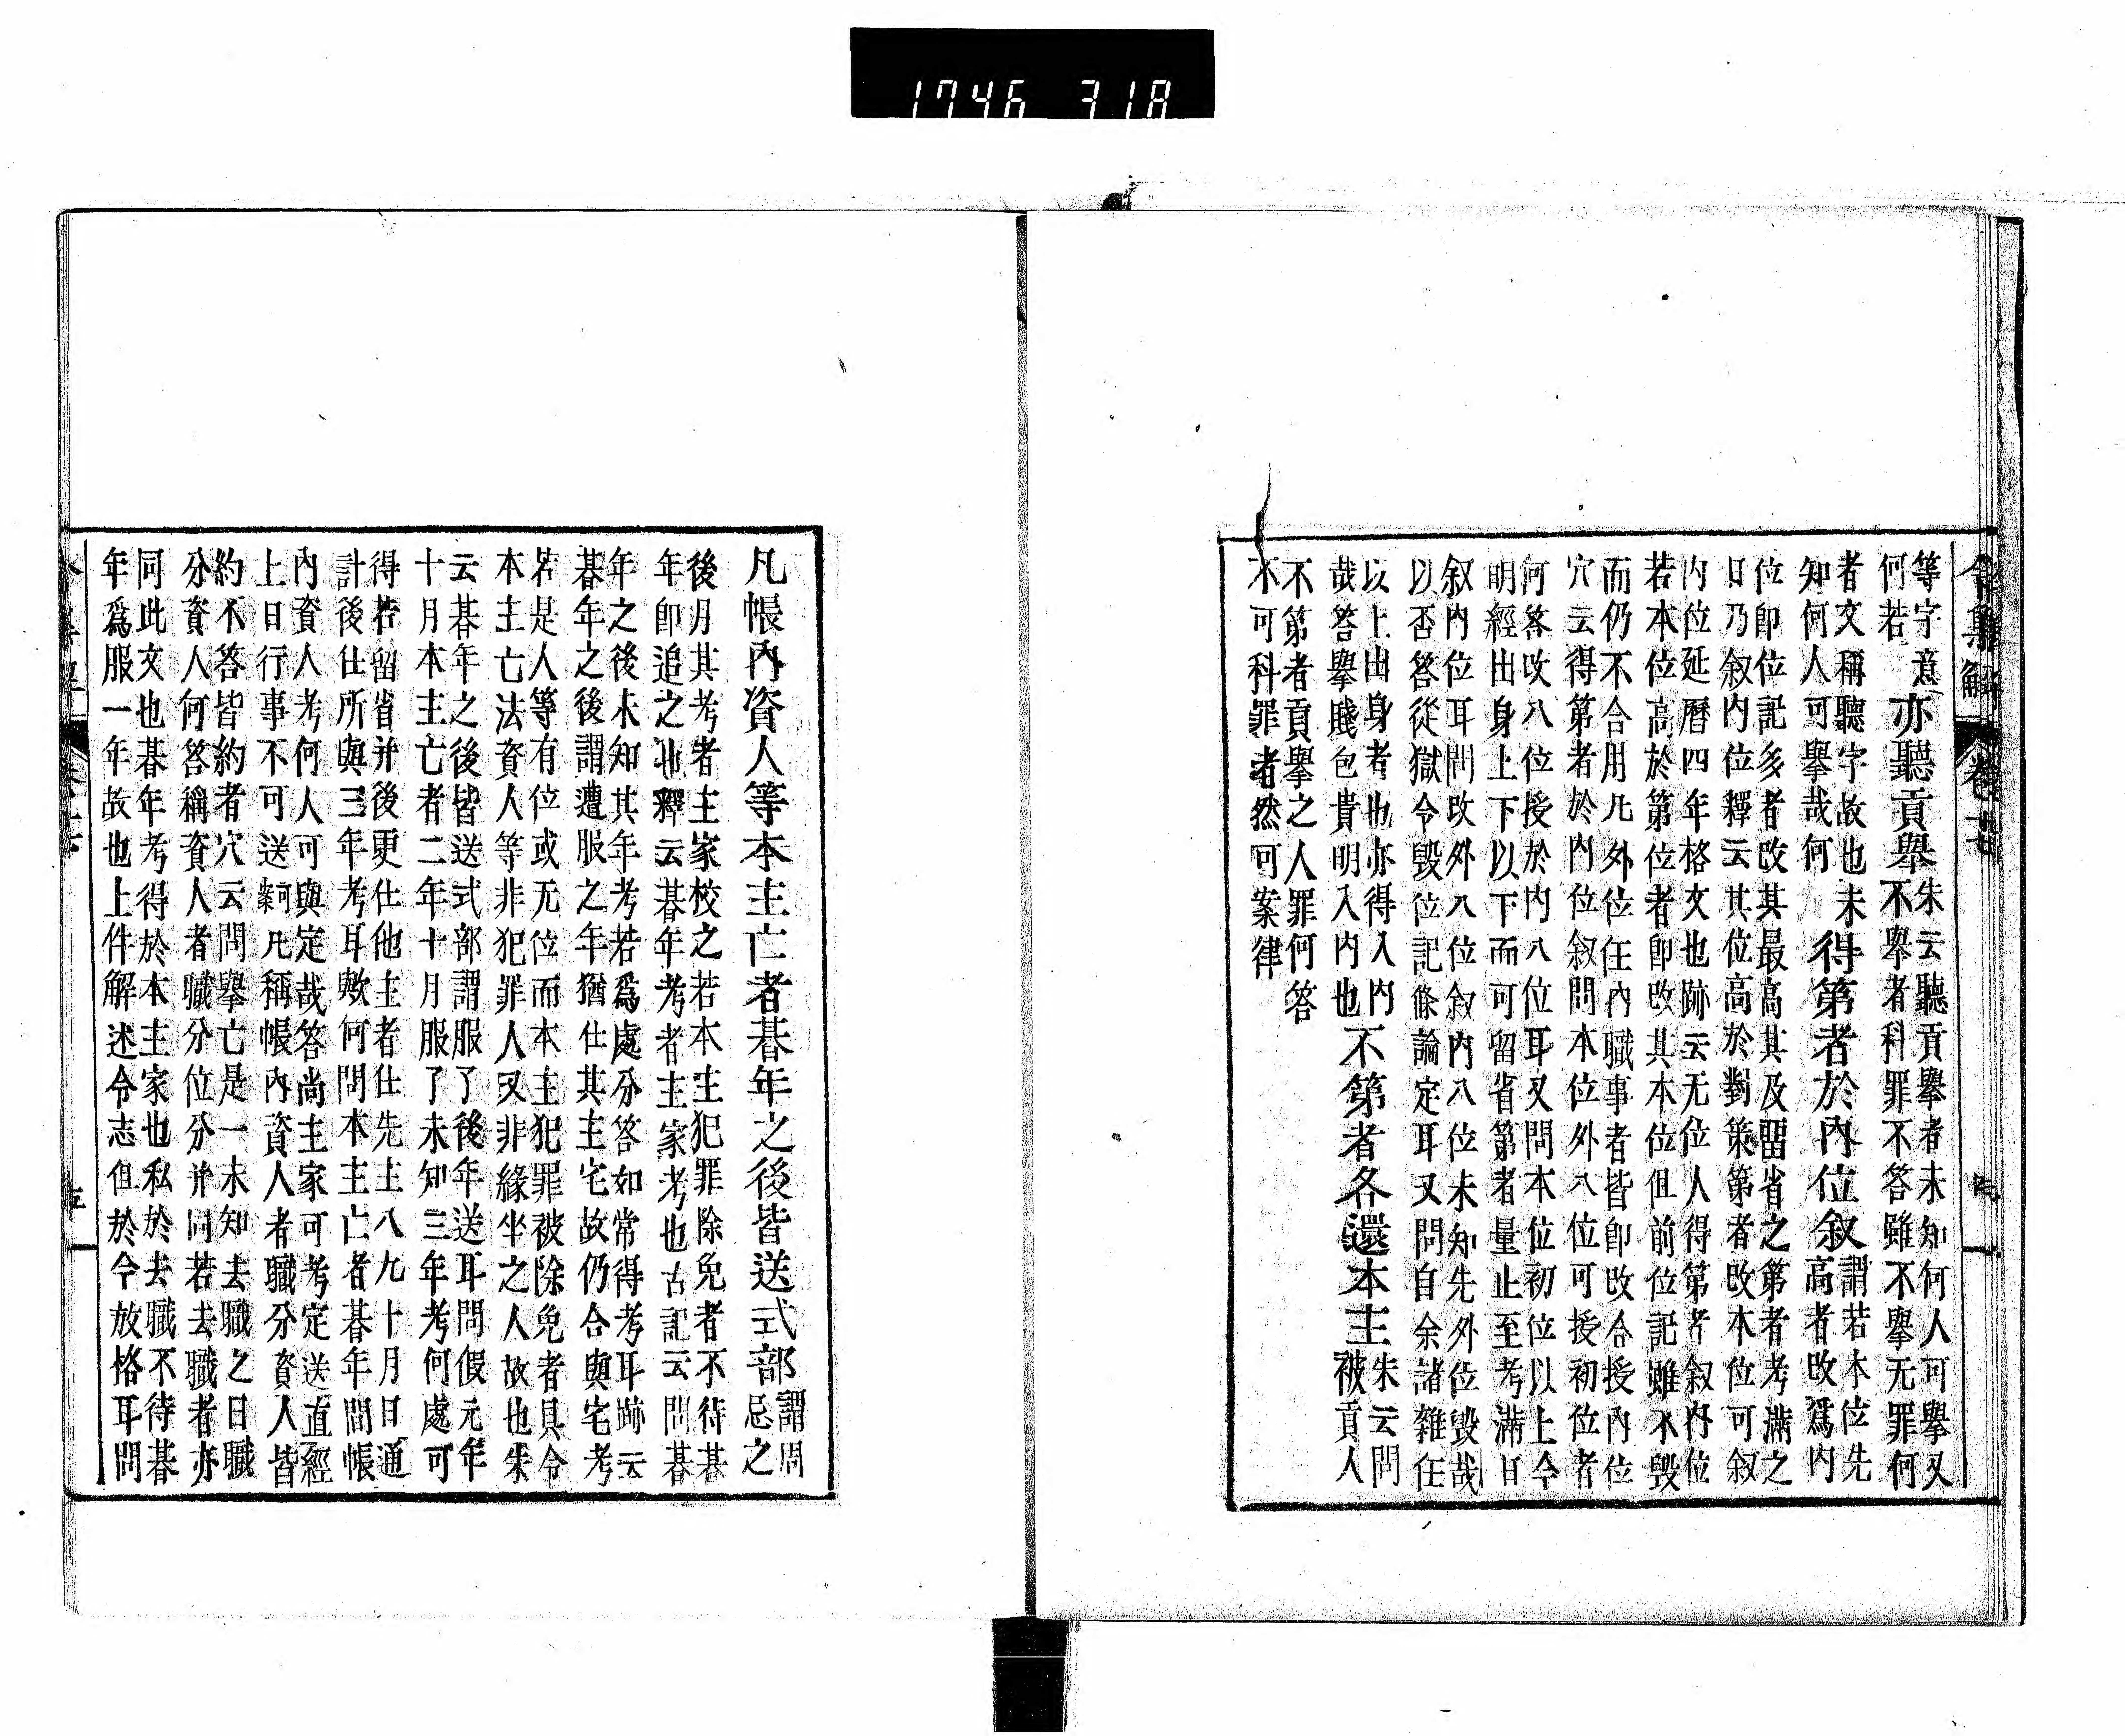 1746 318
令集解 卷十七
等字意
何若
亦聽貢擧
朱云聽貢擧者未知何人可擧又
不擧者科罪不答雖不擧无罪何
者文稱聽字故也未
知何人可擧哉何
得第者於內位叙
謂若本位先
高者改爲內
位卽位記多者改其最高其及留省之第者考滿之
日乃叙內位釋云其位高於對策第者改本位可叙
內位延曆四年格文也跡云无位人得第者叙內位
若本位高於第位者卽改其本位但前位記雖不毀
而仍不合用凡外位任內職事者皆卽改合授內位
穴云得第者於內位叙問本位外八位可授初位者
何答改八位授於內八位耳又問本位初位以上令
明經出身上下以下而可留省第者量止至考滿日
叙內位耳問改外八位叙內八位未知先外位毀哉
以否答從獄令毀位記條論定耳又問自余諸雜任
以上出身者也亦得入內
哉答擧賤包貴明入內也
不第者各還本主
朱云問
被貢人
不第者貢擧之人罪何答
不可科罪者然可案律
凡帳內資人等本主亡者朞年之後皆送式部
謂周
忌之
後月其考者主家校之若本主犯罪除免者不待朞
年卽追之也釋云朞年考者主家考也古記云問朞
年之後未知其年考若爲處分答如常得考耳跡云
朞年之後謂遭服之年猶仕其主宅故仍合與宅考
若是人等有位或无位而本主犯罪被除免者具令
本主亡法資人等非犯罪人又非緣坐之人故也朱
云朞年之後皆送式部謂服了後年送耳問假元年
十月本主亡者二年十月服了未知三年考何處可
得若留省并後更仕他主者仕先主八九十月日通
計後仕所與三年考耳歟何問本主亡者朞年間帳
內資人考何人可與定哉答尚主家可考定送直經
上日行事不可送歟凡稱帳內資人者職分資人皆
約不答皆約者穴云問擧亡是一未知去職之日職
分資人何答稱資人者職分位分并同若去職者亦
同此文也朞年考得於本主家也私於去職不待朞
年爲服一年故也上件解迷令志但於今放格耳問